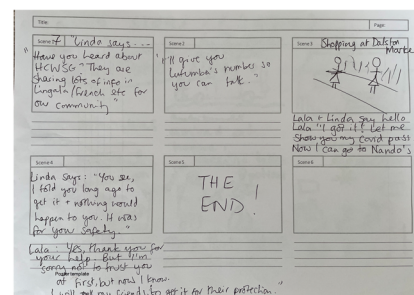 Title:
Page:
Scene 7 "Linda says...
"Have you heard about
HCWSG "They are
sharing lots of info in
Lingala/French etc for
our community"
Scene 2
"I'll give you
Lutumba's number so
you can talk."
Scene 3 Shopping at Dalston
Market
Lala + Linda say hello
Lala "I got it! Let me
show you my covid pass
Now I can go to Nando's
Scene 4
Linda says: "You see,
I told you long ago to
get it + nothing would
happen to you. It was
for your safety."
Lala: Yes, thank you for
your help. But I'm
sorry not to trust you
at first, but now I know.
I will tell my friends to get it for their protection."
Poster template
Scene 5
THE
END!
Scene 6